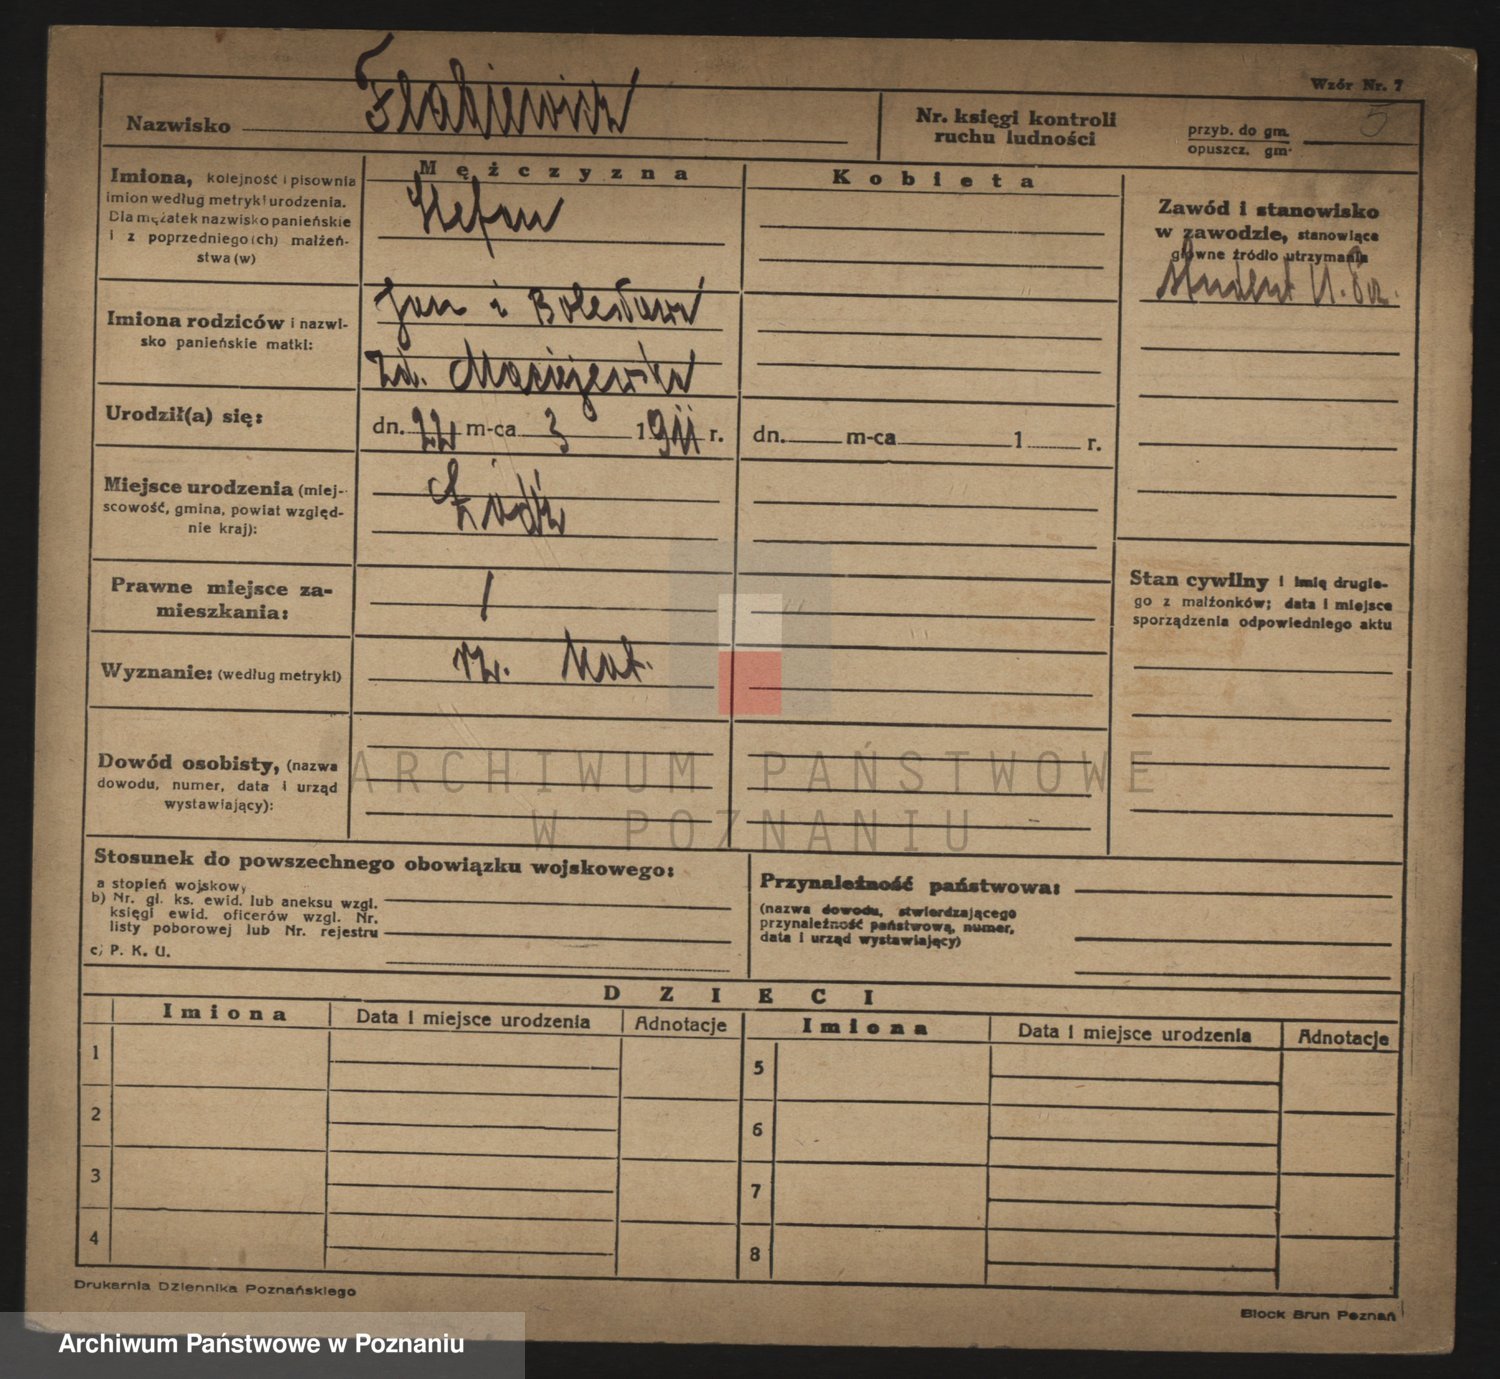 Wzór Nr. 7
Nazwisko Flakiewicz
Nr. księgi kontroli
ruchu ludności
przyb. do gm.
opuszcz. gm.
5
Imiona, kolejność i pisownia
imion według metryki urodzenia.
Dla mężatek nazwisko panieńskie
i z poprzedniego(ch) małżeń-
stwa (w)
Mężczyzna
Stefan
Kobieta
Zawód i stanowisko
w zawodzie, stanowiące
główne źródło utrzymania
student U. Poz.
Imiona rodziców i nazwi-
sko panieńskie matki:
Jan i Bolesława
zd. Maciejewska
Urodził(a) się:
dn. 22 m-ca 3 1911 r.
dn. m-ca 1 r.
Miejsce urodzenia (miej-
scowość, gmina, powiat względ-
nie kraj):
Łódź
Prawne miejsce za-
mieszkania:
Stan cywilny i imię drugie-
go z małżonków; data i miejsce
sporządzenia odpowiedniego aktu
Wyznanie: (według metryki)
rz. kat.
Dowód osobisty, (nazwa
dowodu, numer, data i urząd
wystawiający):
ARCHIWUM PAŃSTWOWE
W POZNANIU
Stosunek do powszechnego obowiązku wojskowego:
a stopień wojskowy
b) Nr. gł. ks. ewid. lub aneksu wzgl.
księgi ewid. oficerów wzgl. Nr.
listy poborowej lub Nr. rejestru
c) P. K. U.
Przynależność państwowa:
(nazwa dowodu, stwierdzającego
przynależność państwową, numer,
data i urząd wystawiający)
DZIECI
Imiona Data i miejsce urodzenia Adnotacje Imiona Data i miejsce urodzenia Adnotacje
1 5
2 6
3 7
4 8
Drukarnia Dziennika Poznańskiego
Block Brun Poznań
Archiwum Państwowe w Poznaniu